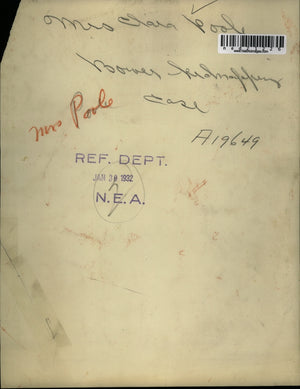 Mrs Clara Poole
Bower Kidnapping
Case
Mrs Poole
A19649
REF. DEPT.
JAN 30 1932
N.E.A.